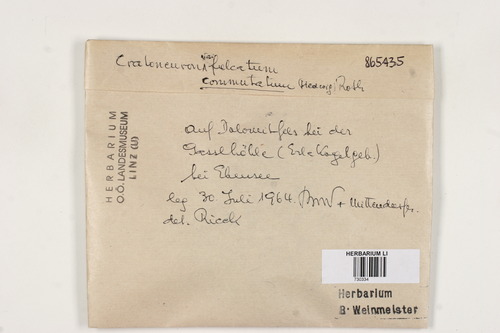 Cratoneuron var. falcatum 865435
commutatum Hedwig, Roth
HERBARIUM
O.Ö. LANDESMUSEUM
LINZ (U)
auf Dolomitfels bei der
Gasselhöhle (Erlakogelgeb.)
bei Ebensee
leg 30 Juli 1964. + Mittendorfer
det. Ricek
HERBARIUM LI
730334
Herbarium
B. Weinmeister